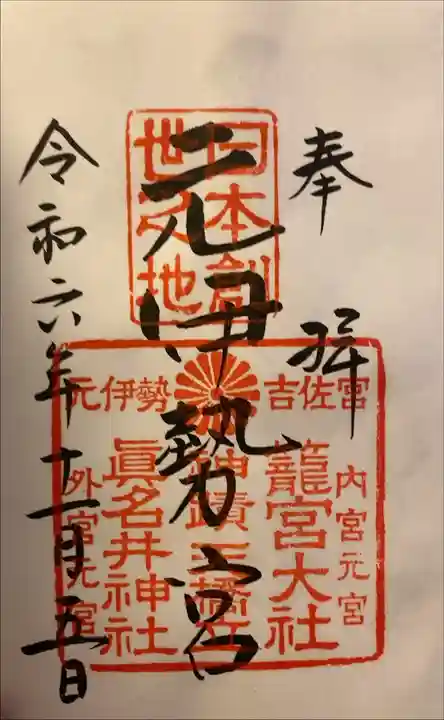 奉拝
日本創
世之地
元伊勢宮
吉佐宮
元伊勢
内宮元宮
籠宮大社
神蹟天橋立
眞名井神社
外宮元宮
令和六年十一月五日